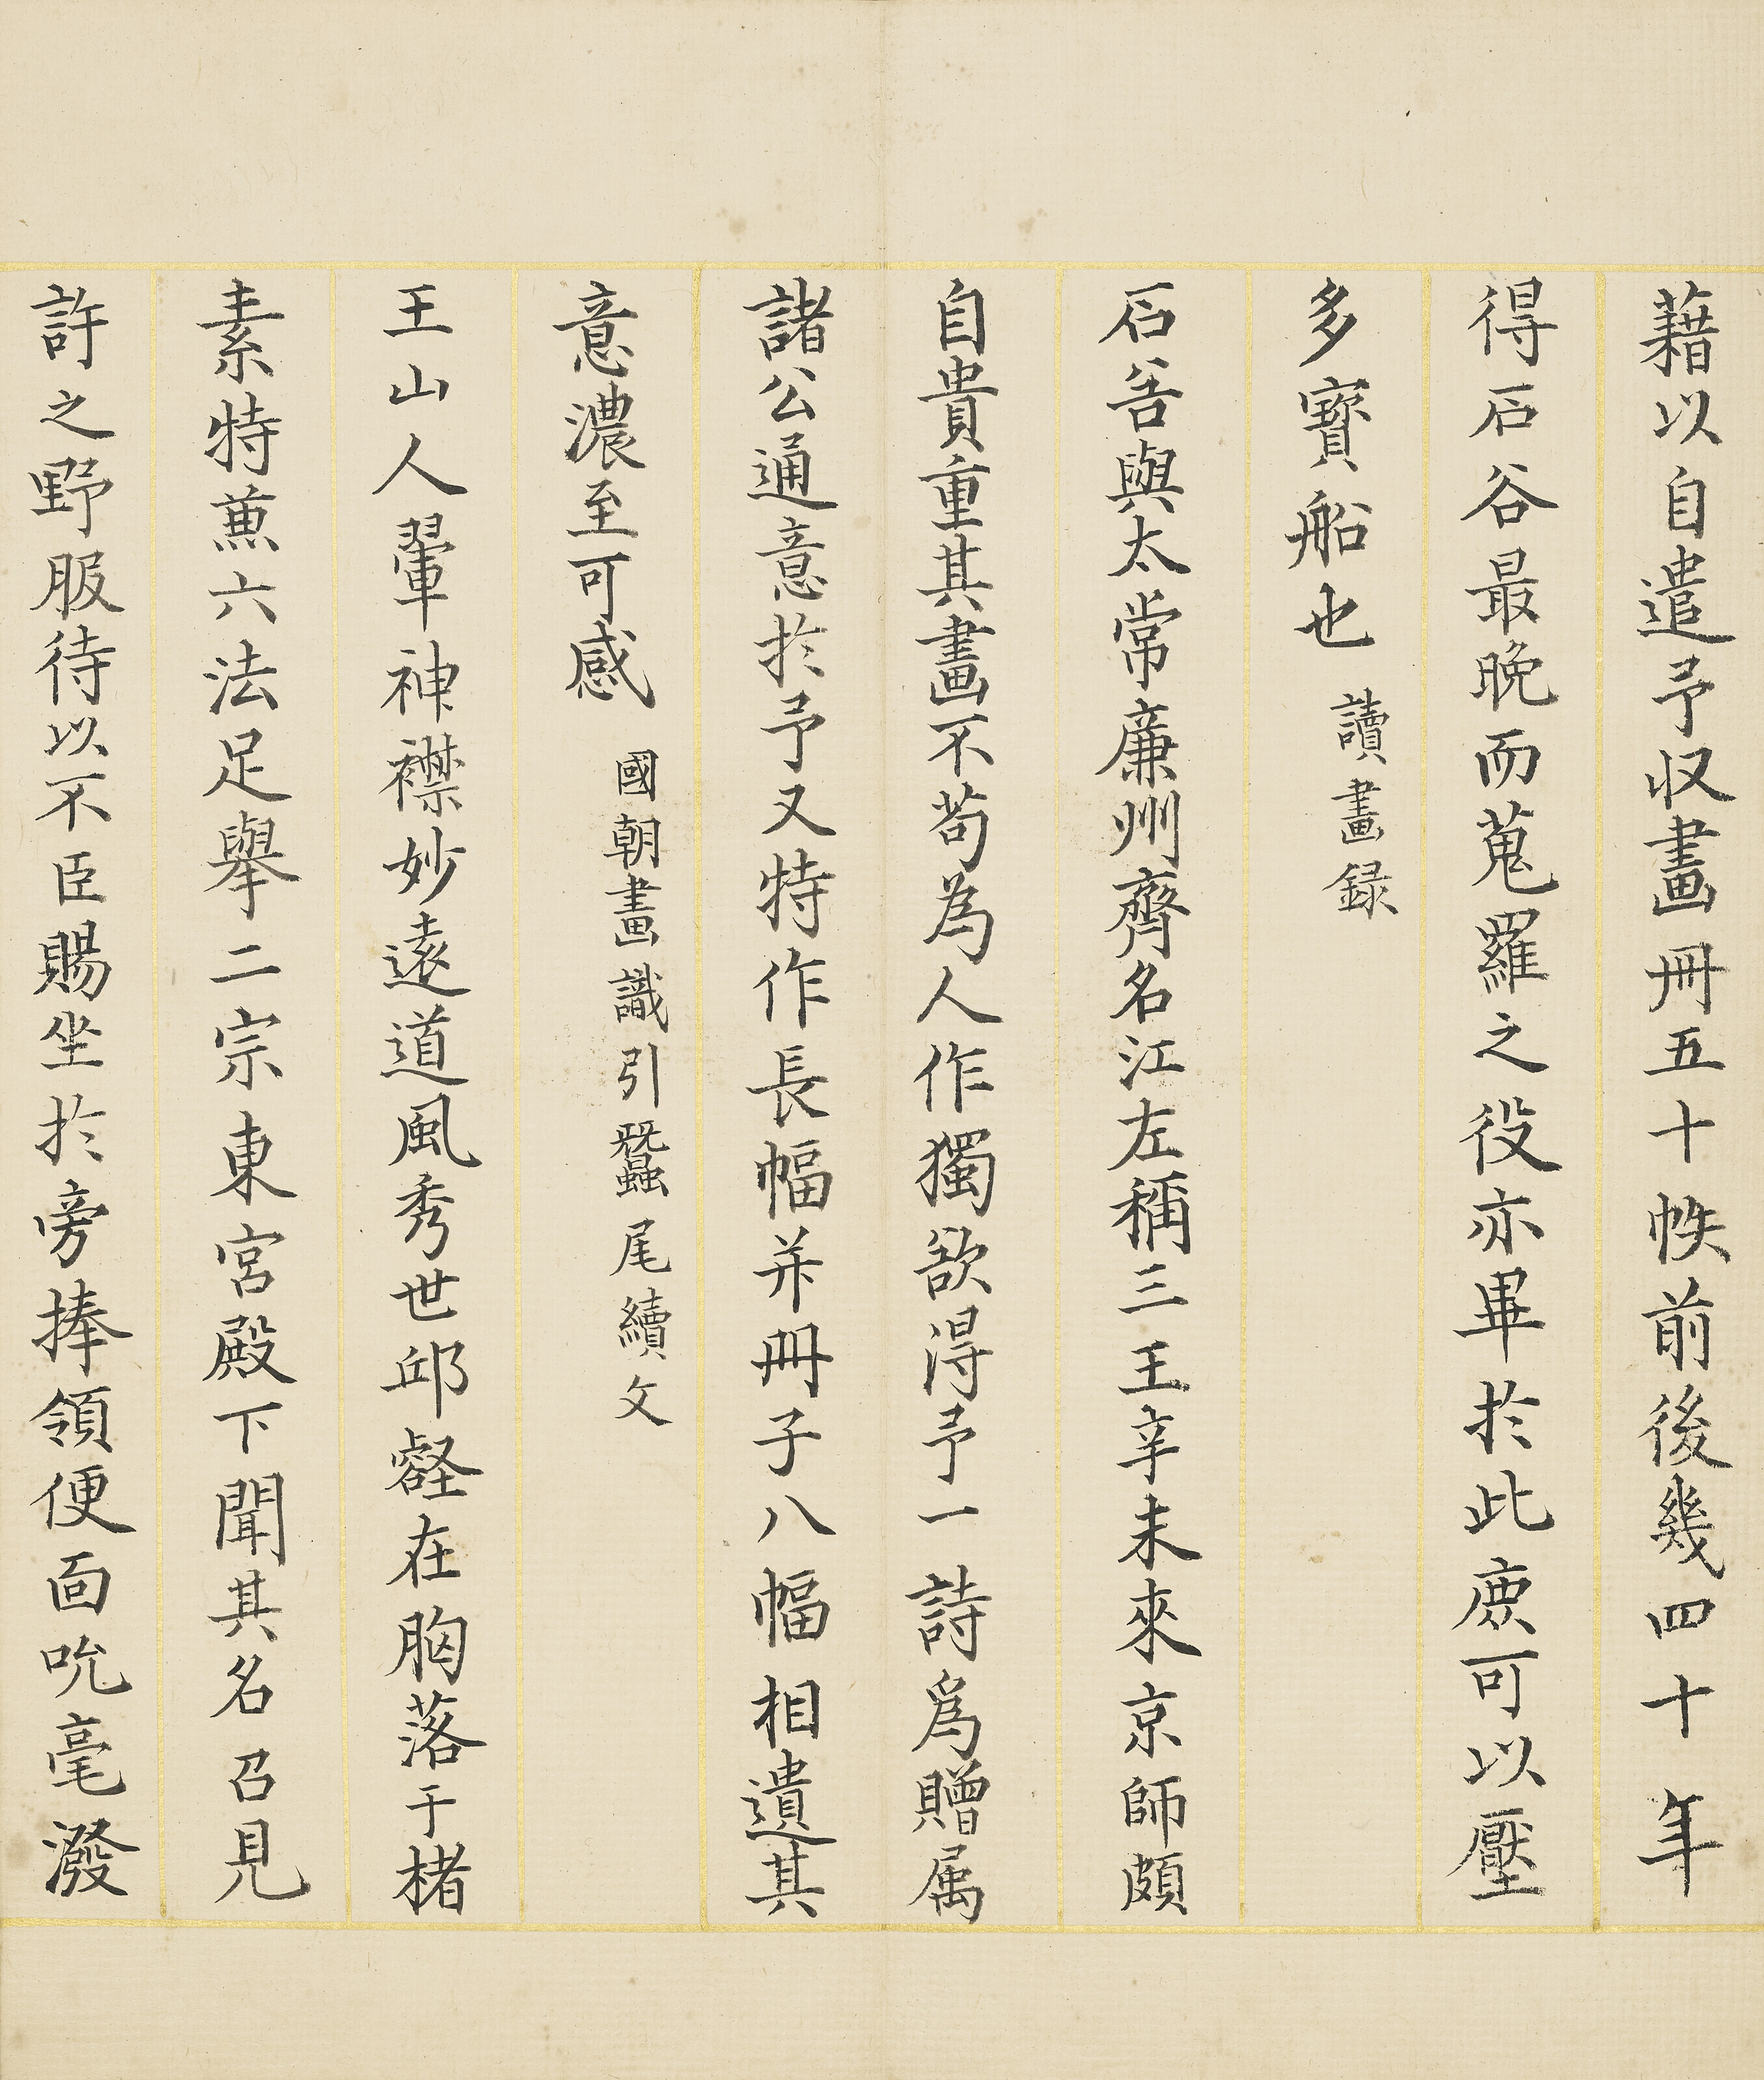 藉以自遣予収畫冊五十帙前後幾四十年
得石谷最晚而蒐羅之役亦畢於此麃可以壓
多寶船也 讀畫録
石谷與太常廉州齊名江左稱三王辛未來京師頗
自貴重其畫不苟為人作獨欲得予一詩爲贈属
諸公通意於予又特作長幅并冊子八幅相遺其
意濃至可感 國朝畫識引蠶尾續文
王山人翬神襟妙遠道風秀世邱壑在胸落于楮
素特兼六法足舉二宗東宮殿下聞其名召見
許之野服待以不臣賜坐於旁捧領便面吮毫潑